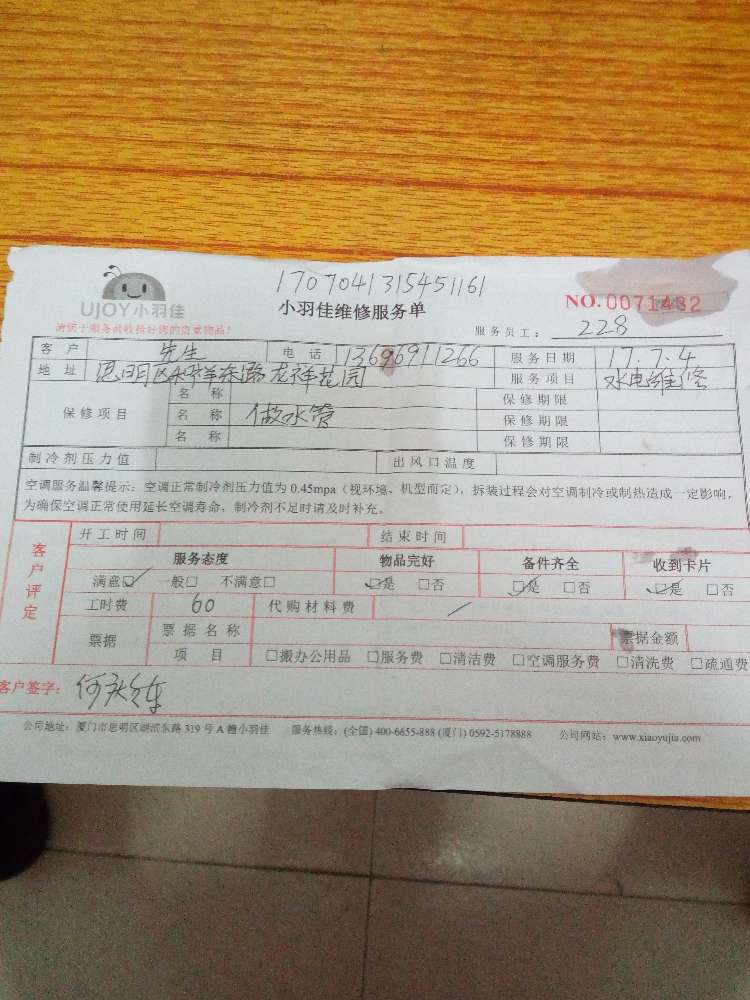 1707041315451161
UJOY小羽佳
小羽佳维修服务单
NO. 0071432
请便于服务前收拾好您的贵重物品！
服务员工： 228
客 户 先生 电 话 13696911266 服务日期 17.7.4
地 址 思明区 祥东路龙祥花园 服务项目 水电维修
保修项目 名 称 保修期限
名 称 做水管 保修期限
名 称 保修期限
制冷剂压力值 出风口温度
空调服务温馨提示：空调正常制冷剂压力值为 0.45mpa（视环境、机型而定），拆装过程会对空调制冷或制热造成一定影响，
为确保空调正常使用延长空调寿命，制冷剂不足时请及时补充。
客户评定
开工时间 结束时间
服务态度 物品完好 备件齐全 收到卡片
满意☑ 一般□ 不满意□ ☑是 □否 ☑是 □否 ☑是 □否
工时费 60 代购材料费 /
票据 票据名称 票据金额
项 目 □搬办公用品 □服务费 □清洁费 □空调服务费 □清洗费 □疏通费
客户签字：
公司地址：厦门市思明区湖滨东路 319 号 A 幢小羽佳 服务热线：(全国) 400-6655-888 (厦门) 0592-5178888 公司网站：www.xiaoyujia.com